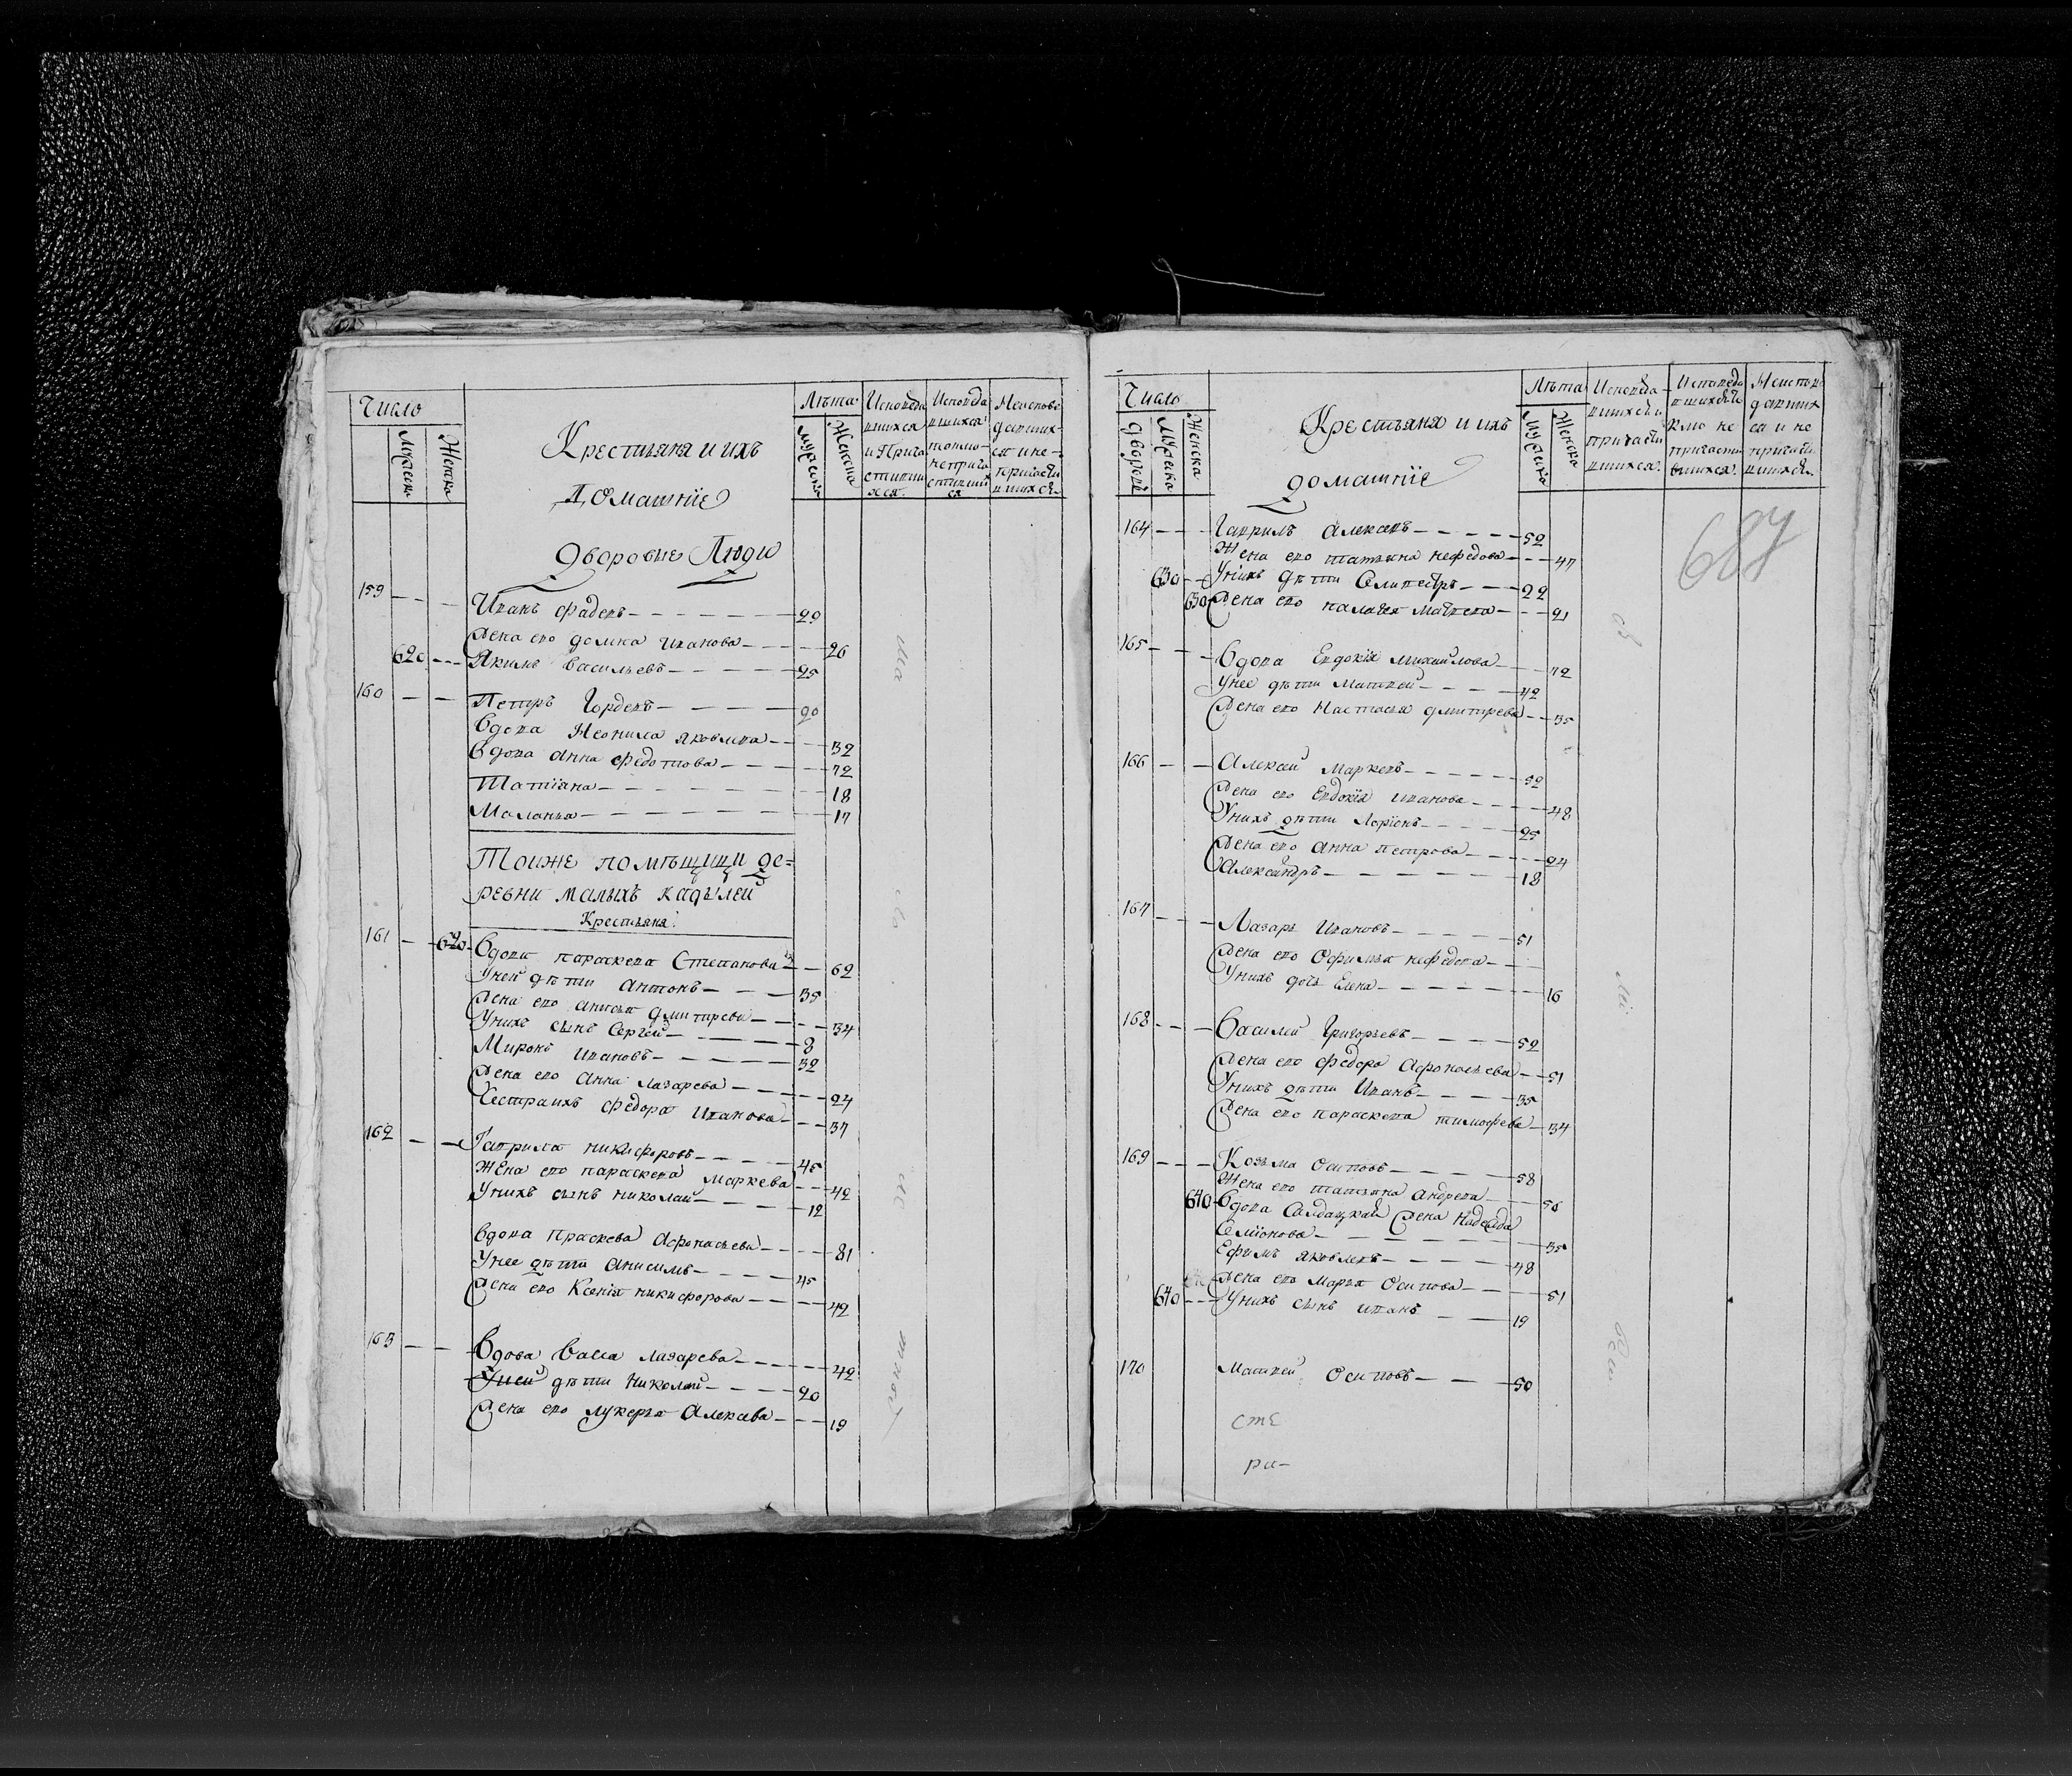 Число
Мужеска
Женска
Крестьяня и ихъ
домашніе
Лѣта
Мужска
Женска
Исповеда
вшихся
и Прича
стивши
хся
Исповеда
вшихся
токмо
неприча
стивши
ся
Неиспове
давших
ся и не
причасти
вшихся
Дворовые Люди
159 Иванъ Фадевъ 29
Жена ево домна Иванова 26
620 Якимъ Васильевъ 25
160 Петръ Гордевъ 20
Вдова Неонила Яковлева 32
Вдова Анна Федотова 72
Татіяна 18
Маланья 17
Тоиже помѣщицы де=
ревни малыхъ кадылей
Крестьяня
161 620 Вдова параскева Степанова 62
Уней дѣти Антонъ 35
Жена ево Анисья Дмитрева 34
Унихъ сынъ Сергей 8
Миронъ Ивановъ 32
Жена ево Анна Лазарева 24
Сестра ихъ Федора Иванова 37
162 Гаврила никифоровъ 45
Жена ево параскева Маркева 42
Унихъ сынъ николай 12
Вдова Праскева Афонасьева 81
Унее дѣти Анисимъ 45
Жена ево Ксенія никифорова 42
163 Вдова Васса лазарева 42
Уней дѣти Николай 20
Жена ево лукерья Алексева 19
Число
дворовъ
Мужеска
Женска
Крестьяня и ихъ
домашніе
Лѣта
Мужеска
Женска
Исповеда
вшихся и
причасти
вшихся
Исповеда
вшихся то
кмо не
причасти
вшихся
Неиспове
давших
ся и не
причасти
вшихся
687
164 Гаврилъ Алексевъ 52
Жена ево татьяна нефедова 47
630 Унихъ дѣти Селивестръ 22
630 Жена ево палагея Матвева 21
165 Вдова Евдокія михайлова 72
Унее дѣти Матвей 42
Жена ево Настасья дмитрева 35
166 Алексей Маркевъ 52
Жена ево Евдокія Иванова 48
Унихъ дѣти Ларіонъ 25
Жена ево Анна петрова 24
Александръ 18
167 Лазарь Ивановъ 51
Жена ево Офимья нефедева
Унихъ дочь Елена 16
168 Василей Григорьевъ 52
Жена ево федора Афонасьева 51
Унихъ дѣти Иванъ 35
Жена ево параскева тимофева 34
169 Козьма Осиповъ 58
Жена ево татьяна Андрева 56
640 Вдова Салдацкая Жена Надежда
Семіонова 35
Ефимъ яковлевъ 48
Жена ево Марья Осипова 51
640 Унихъ сынъ иванъ 19
170 Матвей Осиповъ 50
сте
ра-